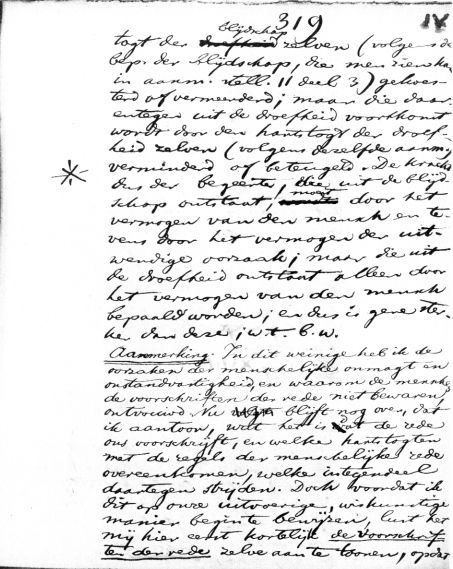 319 IV
blijdschap
togt der droefheid zelven (volgens de
bep. der blijdschap, die men zien kan
in aanm. stell. 11 deel 3) gekoes-
terd of vermeerderd; maar die daar-
entegen uit de droefheid voortkomt
wordt door den hartstogt der droef-
heid zelven (volgens dezelfde aanm.)
verminderd of beteugeld. De kracht
dus der begeerte, die uit de blijd-
schap ontstaat, moet door het
vermogen van den mensch en te-
vens door het vermogen der uit-
wendige oorzaak; maar die uit
de droefheid ontstaat alleen door
het vermogen van den mensch
bepaald worden; en dus is gene ster-
ker dan deze; w.t.b.w.
Aanmerking. In dit weinige heb ik de
oorzaken der menschelijke onmagt en
onstandvastigheid, en waarom de menschen
de voorschriften der rede niet bewaren,
ontvouwd. Nu blijft nog over, dat
ik aantoon, wat het is dat de rede
ons voorschrijft, en welke hartstogten
met de regels der menschelijke rede
overeenkomen, welke integendeel
daartegen strijden. Doch voordat ik
dit op onze uitvoerige, wiskunstige
manier beginne te bewijzen, lust het
mij hier eerst kortelijk de voorschrif-
ten der rede zelve aan te toonen, opdat